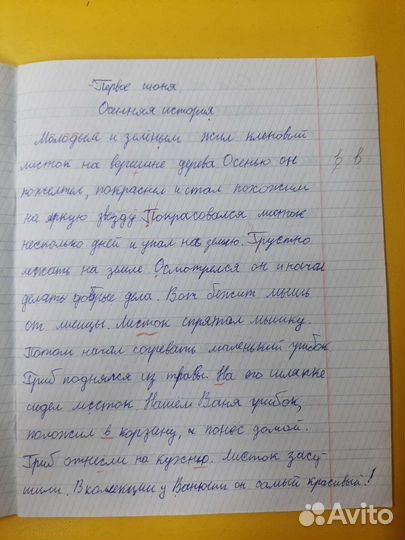 Первое июня
Осенняя история
Молодым и зелёным жил кленовый
листок на вершине дерева Осенью он
пожелтел, покраснел и стал похожим
на яркую звезду Покрасовался листок
несколько дней и упал на землю. Грустно
лежать на земле Осмотрелся он и начал
делать добрые дела. Вот бежит мышь
от лисицы. Листок спрятал мышку.
Потом начал согревать маленький грибок
Гриб поднялся из травы. На его шляпке
сидел листок Нашёл Ваня грибок,
положил в корзину, и понёс домой.
Гриб отнесли на кухню. Листок засу-
шили. В коллекции у Ванюши он самый красивый!
Avito